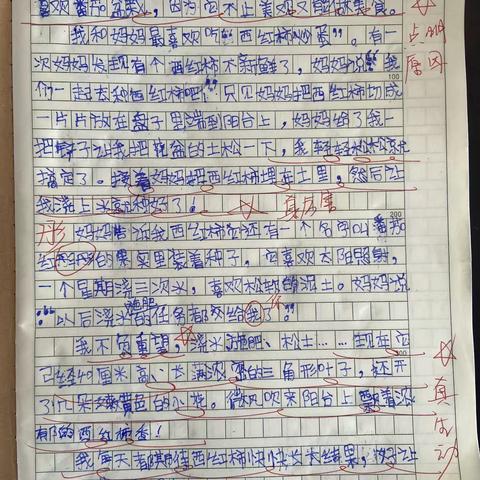 喜欢番茄盆栽，因为它不止美观又有
我和妈妈最喜欢吃"西红柿炒蛋"。有一
点明
次妈妈发现有个西红柿不新鲜了，妈妈说："我
原因
们一起去种西红柿吧！"只见妈妈把西红柿切成
100
一片片放在盘子里端到阳台上，妈妈给了我一
把铲子让我把花盆的土松一下，我轻轻松松就
搞定了。接着妈妈把西红柿埋在土里，然后让
我浇上水就种好了！
真厉害
200
妈妈告诉我西红柿它还有一个名字叫番茄
红彤彤的果实里装着种子，它喜欢太阳照射，
一个星期浇三次水，喜欢松软的泥土。妈妈说
："以后浇水施肥的任务都交给我了"
我不负重望，浇水、施肥、松土……现在它
300
已经40厘米高、长满浓密的三角形叶子，还开
了几朵淡黄色的小花。微风吹来阳台上飘着浓
郁的西红柿香！
真生动
我每天都期待西红柿快快长大结果，好让